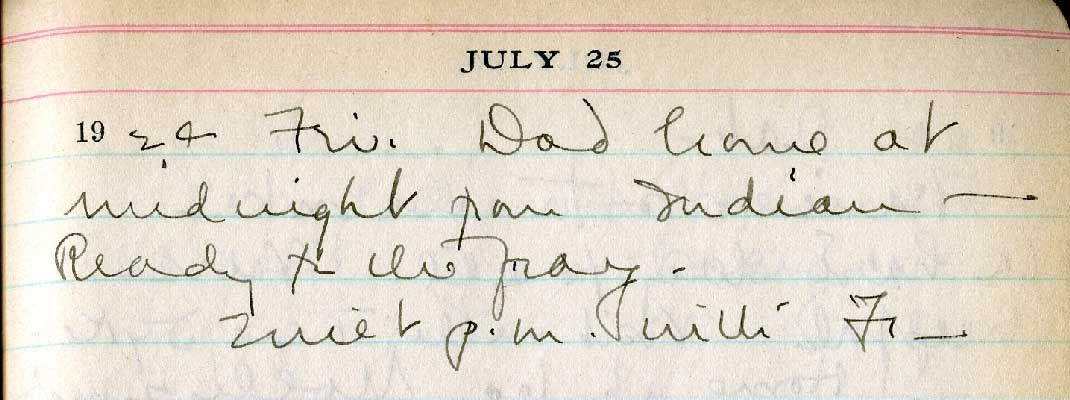 JULY 25
1924 Fri. Dad home at
midnight from Indian —
Ready for the fray -
Quiet p.m. with F —